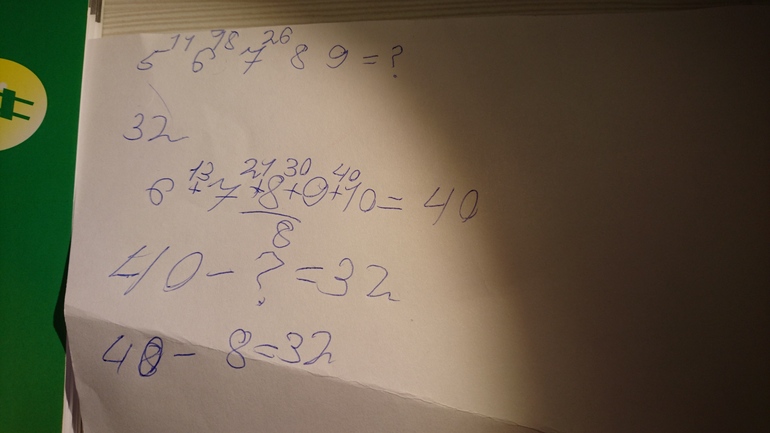 11 18 26
5 6 7 8 9 = ?
32
13 21 30 40
6 + 7 + 8 + 9 + 10 = 40
8
40 - ? = 32
40 - 8 = 32